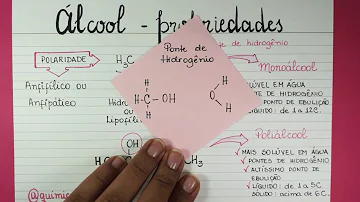 Álcool - propriedades
POLARIDADE
Anfifílico ou
Anfipático
Ponte de
Hidrogênio
H
H-C-OH
H
O
H
H
H₃C
de hidrogênio
Monoálcool
SOLÚVEL EM ÁGUA
DE HIDROGÊNIO
PONTO DE EBULIÇÃO
LÍQUIDO: de 1 a 12C.
OH
H₃
Poliálcool
✓ MAIS SOLÚVEL EM ÁGUA
✓ PONTES DE HIDROGÊNIO
✓ ALTÍSSIMO PONTO
DE EBULIÇÃO
✓ LÍQUIDO: de 1 a 5C
SÓLIDO: acima de 6C.